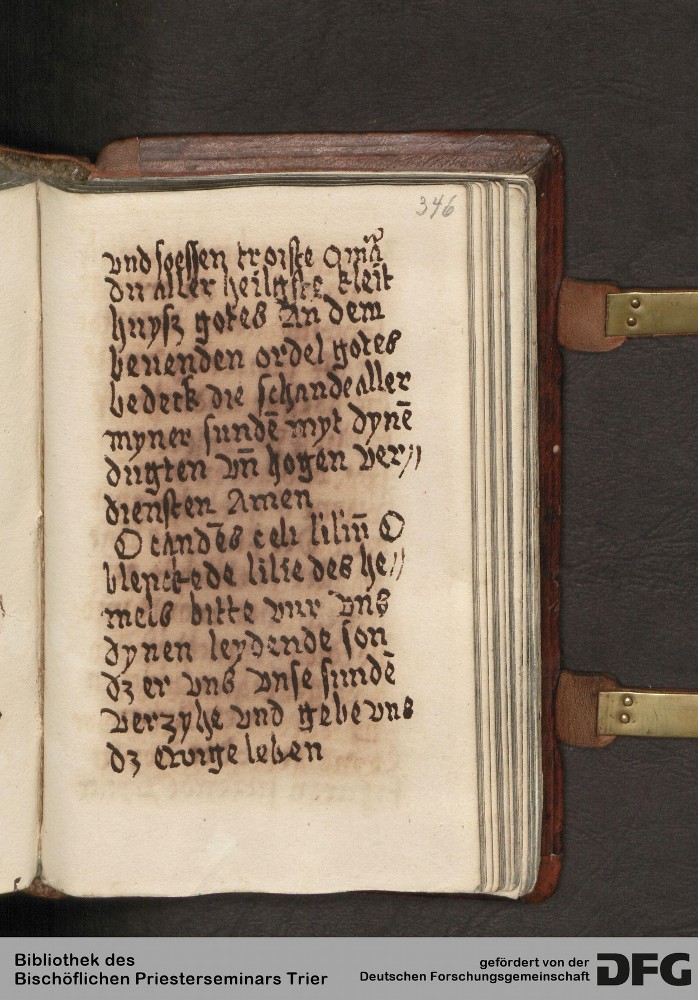 346
vnd soessen troiste O mā
du aller heiligste kleit
huysz gotes An dem
beuenden ordel gotes
bedeck die schande aller
myner sundē myt dynē
dugten vn̄ hogen ver//
diensten Amen
O candēs celi liliū O
blenckede lilie des he//
mels bitte vur vns
dynen leydende son
dz er vns vnse sundē
verzyhe vnd gebe vns
dz ewige leben
Bibliothek des
Bischöflichen Priesterseminars Trier
gefördert von der
Deutschen Forschungsgemeinschaft DFG